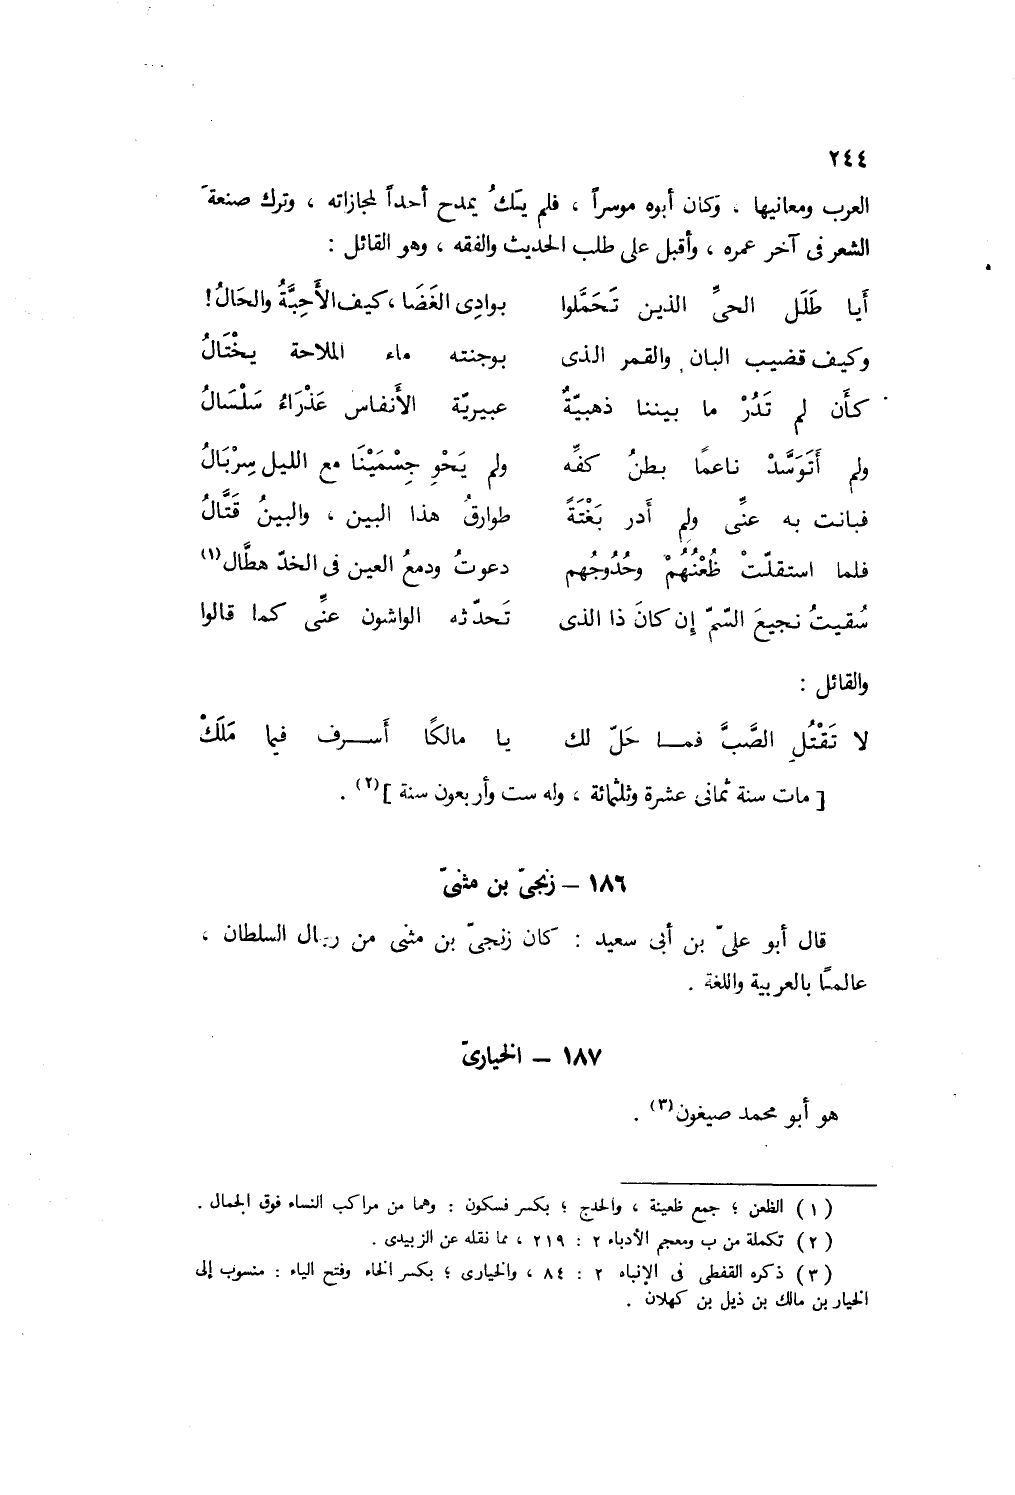 ٢٤٤
العرب ومعانيها . وكان أبوه موسراً ، فلم يَكُ يمدح أحداً لمجازاته ، وترك صنعةَ
الشعر فى آخر عمره ، وأقبل على طلب الحديث والفقه ، وهو القائل :
أيا طَلَل الحىِّ الذين تَحَمَّلوا بوادِى الغَضَا ، كيف الأَحِبَّةُ والحَالُ !
وكيف قضيب البان والقمر الذى بوجنته ماء الملاحة يخْتَالُ
كأَن لم تَدُرْ ما بيننا ذهبيّةٌ عبيريّة الأَنفاس عَذْرَاءُ سَلْسَالُ
ولم أَتَوَسَّدْ ناعمًا بطنُ كفِّه ولم يَحْوِ جِسْمَيْنَا مع الليل سِرْبَالُ
فبانت به عنِّى ولم أدر بَغْتَةً طوارقُ هذا البين ، والبينُ قَتَّالُ
فلما استقلّتْ ظُعْنُهُمْ وحُدُوجُهم دعوتُ ودمعُ العين فى الخدّ هطَّال (١)
سُقيتُ نجيعَ السّمّ إن كانَ ذا الذى تَحدّثه الواشون عنِّى كما قالوا
والقائل :
لا تَقْتُلِ الصَّبَّ فمـا حَلّ لك يا مالكًا أَسـرف فيما مَلَكْ
[ مات سنة ثمانى عشرة وثلثمائة ، وله ست وأربعون سنة ] (٢) .
١٨٦ – زنجىّ بن مثنىّ
قال أبو علىّ بن أبى سعيد : كان زنجىّ بن مثنى من رجال السلطان ،
عالمـًا بالعربية واللغة .
١٨٧ – الخيارىّ
هو أبو محمد صيغون (٣) .
(١) الظعن ؛ جمع ظعينة ، والحدج ؛ بكسر فسكون : وهما من مراكب النساء فوق الجمال .
(٢) تكملة من ب ومعجم الأدباء ٢ : ٢١٩ ، مما نقله عن الزبيدى .
(٣) ذكره القفطى فى الإنباه ٢ : ٨٤ ، والخيارى ؛ بكسر الخاء وفتح الياء : منسوب إلى
الخيار بن مالك بن ذيل بن كهلان .